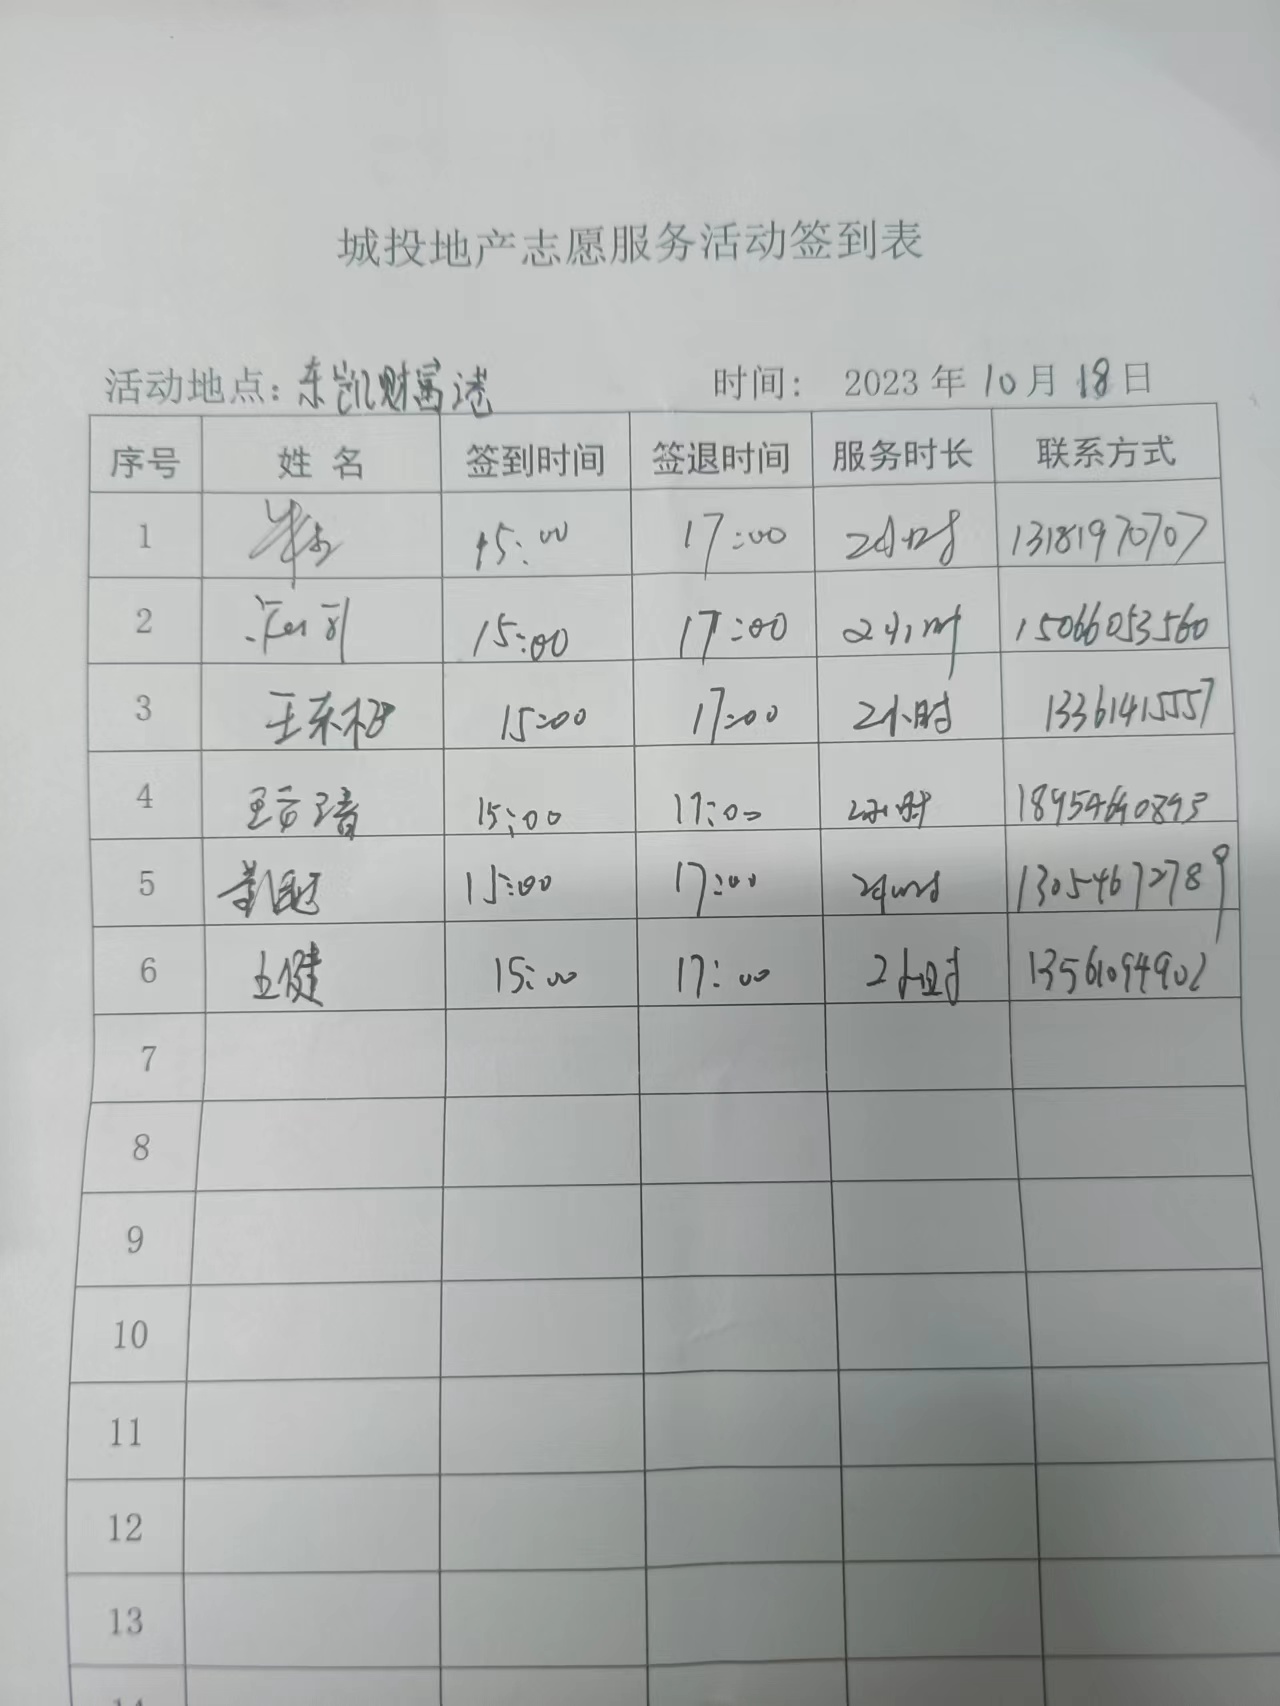 城投地产志愿服务活动签到表
活动地点：东凯财富港 时间： 2023 年 10 月 18 日
序号 姓 名 签到时间 签退时间 服务时长 联系方式
1 15:00 17:00 2小时 13181970707
2 15:00 17:00 2小时 15066053560
3 王东相 15:00 17:00 2小时 13361415557
4 15:00 17:00 2小时 18954640893
5 15:00 17:00 2小时 13054672789
6 王健 15:00 17:00 2小时 13561094902
7
8
9
10
11
12
13
14